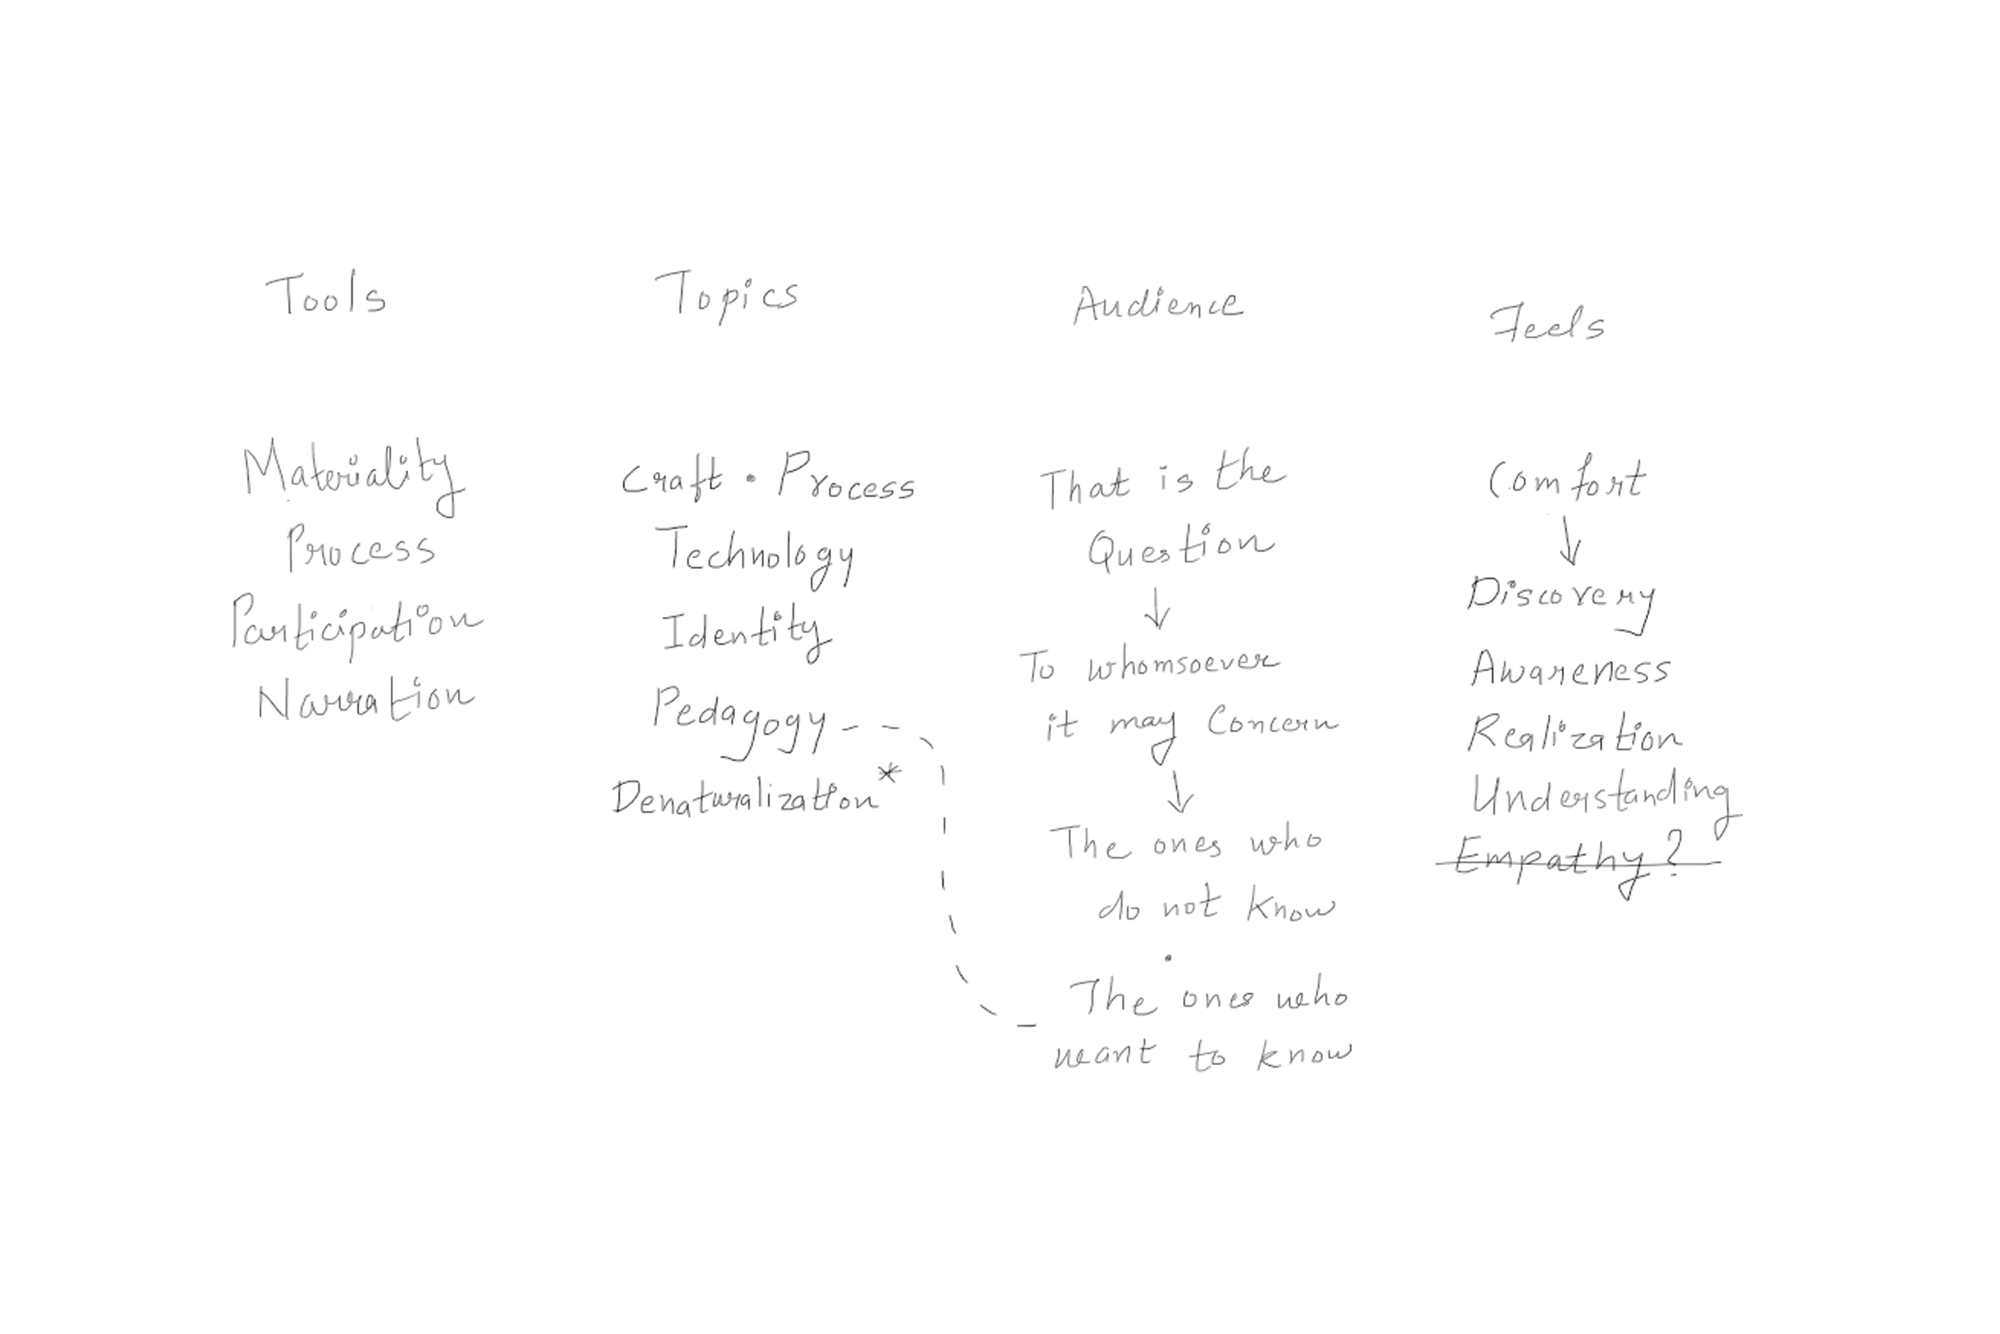 Tools
Materiality
Process
Participation
Narration
Topics
Craft • Process
Technology
Identity
Pedagogy
Denaturalization*
Audience
That is the
Question
↓
To whomsoever
it may Concern
↓
The ones who
do not know
•
The ones who
want to know
Feels
Comfort
↓
Discovery
Awareness
Realization
Understanding
Empathy?